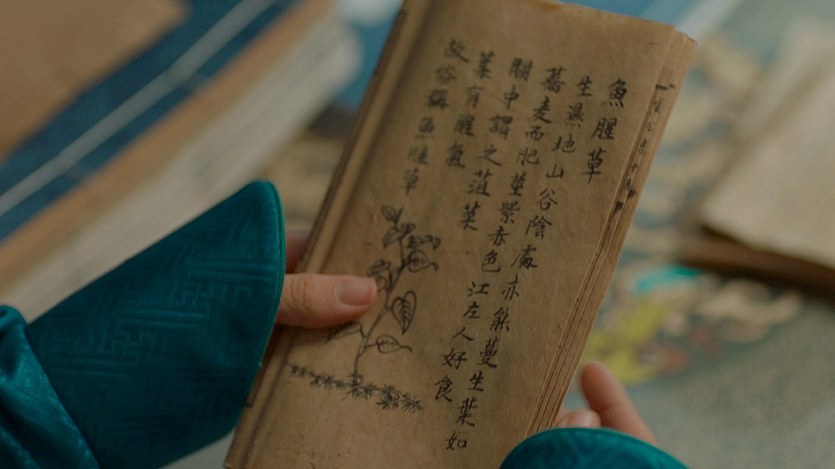 魚腥草
生濕地山谷陰處亦能蔓生葉如
蕎麥而肥莖紫赤色江左人好食
關中謂之菹菜
葉有腥氣
故俗稱魚腥草